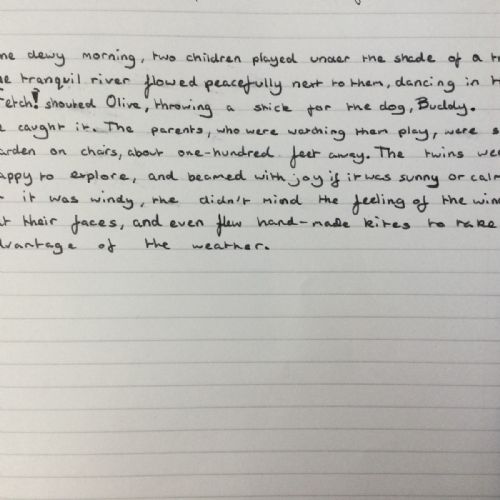 ne dewy morning, two children played under the shade of a tr
he tranquil river flowed peacefully next to them, dancing in th
Fetch! shouted Olive, throwing a stick for the dog, Buddy.
e caught it. The parents, who were watching them play, were s
arden on chairs, about one-hundred feet away. The twins wer
appy to explore, and beamed with joy if it was sunny or calm
it was windy, the didn't mind the feeling of the wind
at their faces, and even flew hand-made kites to take
dvantage of the weather.